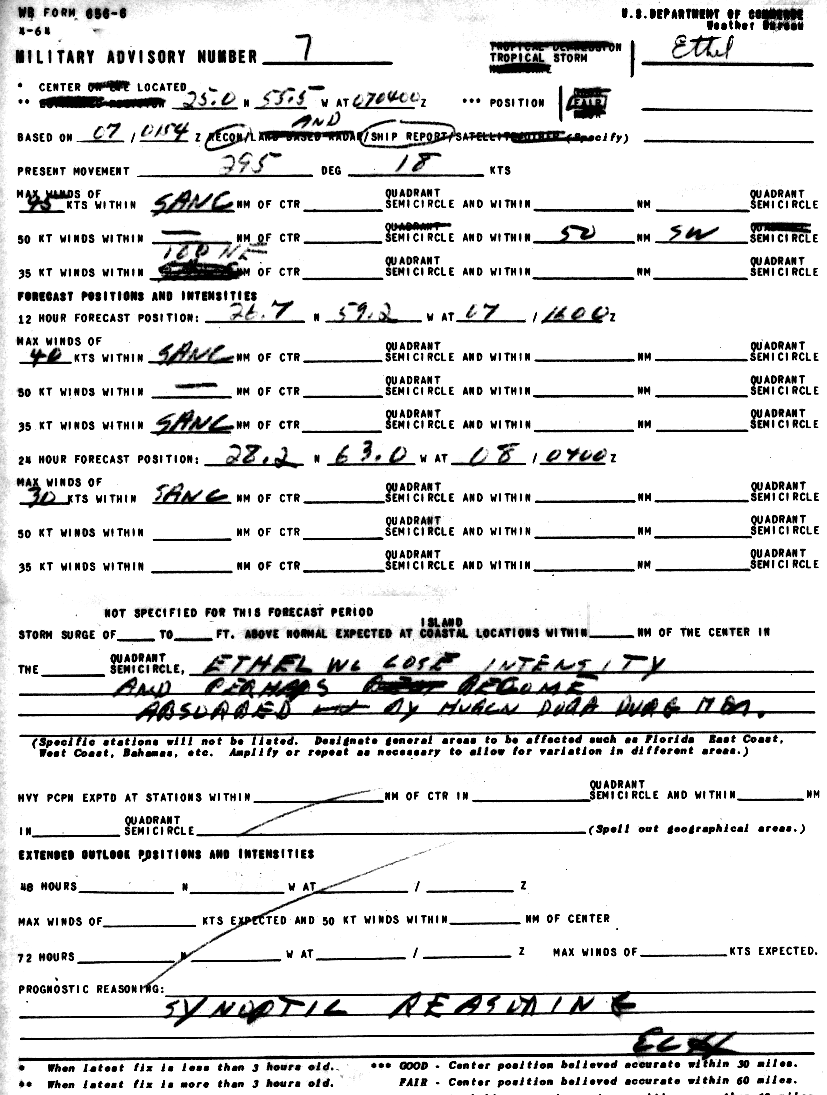 WB FORM 656-6
4-64
U.S. DEPARTMENT OF COMMERCE
Weather Bureau
MILITARY ADVISORY NUMBER 7
TROPICAL DEPRESSION
TROPICAL STORM Ethel
* CENTER LOCATED
** 25.0 N 55.5 W AT 070400Z *** POSITION FAIR
AND
BASED ON 07 / 0154 Z RECON/LAND BASED RADAR/SHIP REPORT/SATELLITE/OTHER (Specify)
PRESENT MOVEMENT 295 DEG 18 KTS
MAX WINDS OF QUADRANT QUADRANT
45 KTS WITHIN SANC NM OF CTR SEMICIRCLE AND WITHIN NM SEMICIRCLE
QUADRANT QUADRANT
50 KT WINDS WITHIN — NM OF CTR SEMICIRCLE AND WITHIN 50 NM SW SEMICIRCLE
100 NE QUADRANT QUADRANT
35 KT WINDS WITHIN NM OF CTR SEMICIRCLE AND WITHIN NM SEMICIRCLE
FORECAST POSITIONS AND INTENSITIES
12 HOUR FORECAST POSITION: 26.7 N 59.2 W AT 07 / 1600Z
MAX WINDS OF QUADRANT QUADRANT
40 KTS WITHIN SANC NM OF CTR SEMICIRCLE AND WITHIN NM SEMICIRCLE
QUADRANT QUADRANT
50 KT WINDS WITHIN — NM OF CTR SEMICIRCLE AND WITHIN NM SEMICIRCLE
QUADRANT QUADRANT
35 KT WINDS WITHIN SANC NM OF CTR SEMICIRCLE AND WITHIN NM SEMICIRCLE
24 HOUR FORECAST POSITION: 28.2 N 63.0 W AT 08 / 0400Z
MAX WINDS OF QUADRANT QUADRANT
30 KTS WITHIN SANC NM OF CTR SEMICIRCLE AND WITHIN NM SEMICIRCLE
QUADRANT QUADRANT
50 KT WINDS WITHIN NM OF CTR SEMICIRCLE AND WITHIN NM SEMICIRCLE
QUADRANT QUADRANT
35 KT WINDS WITHIN NM OF CTR SEMICIRCLE AND WITHIN NM SEMICIRCLE
NOT SPECIFIED FOR THIS FORECAST PERIOD
ISLAND
STORM SURGE OF TO FT. ABOVE NORMAL EXPECTED AT COASTAL LOCATIONS WITHIN NM OF THE CENTER IN
QUADRANT
THE SEMICIRCLE, ETHEL WL LOSE INTENSITY
AND PERHAPS BECOME
ABSORBED BY HURCN DORA DURG
(Specific stations will not be listed. Designate general areas to be affected such as Florida East Coast,
West Coast, Bahamas, etc. Amplify or repeat as necessary to allow for variation in different areas.)
QUADRANT
HVY PCPN EXPTD AT STATIONS WITHIN NM OF CTR IN SEMICIRCLE AND WITHIN NM
QUADRANT
IN SEMICIRCLE (Spell out geographical areas.)
EXTENDED OUTLOOK POSITIONS AND INTENSITIES
48 HOURS N W AT / Z
MAX WINDS OF KTS EXPECTED AND 50 KT WINDS WITHIN NM OF CENTER
72 HOURS N W AT / Z MAX WINDS OF KTS EXPECTED.
PROGNOSTIC REASONING:
SYNOPTIC REASONING
* When latest fix is less than 3 hours old. *** GOOD - Center position believed accurate within 30 miles.
** When latest fix is more than 3 hours old. FAIR - Center position believed accurate within 60 miles.